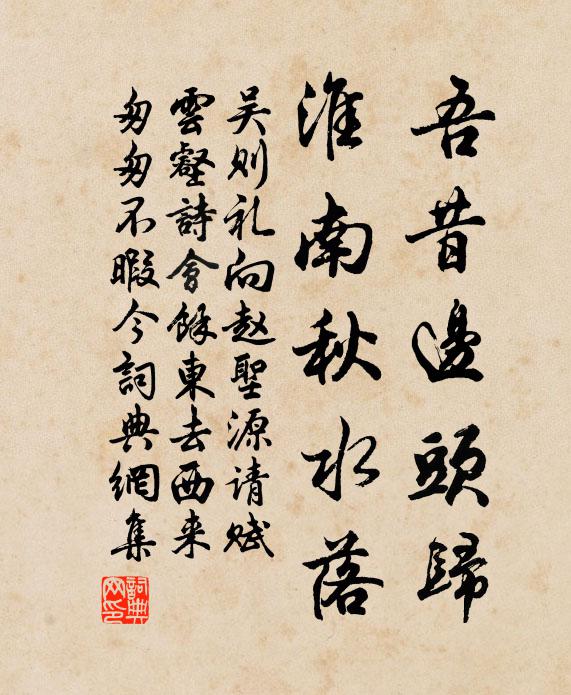 吾昔邊頭歸
淮南秋水落
吴则礼向赵聖源请赋
雲壑詩會餘東去西来
匆匆不暇今詞典網集
詞典网印